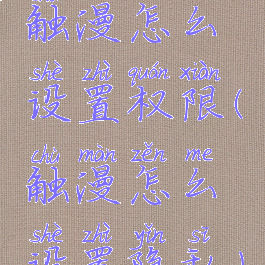 触漫怎么
shè zhì quán xiàn
设置权限(
chù màn zěn me
触漫怎么
shè zhì yǐn sī
设置隐私)